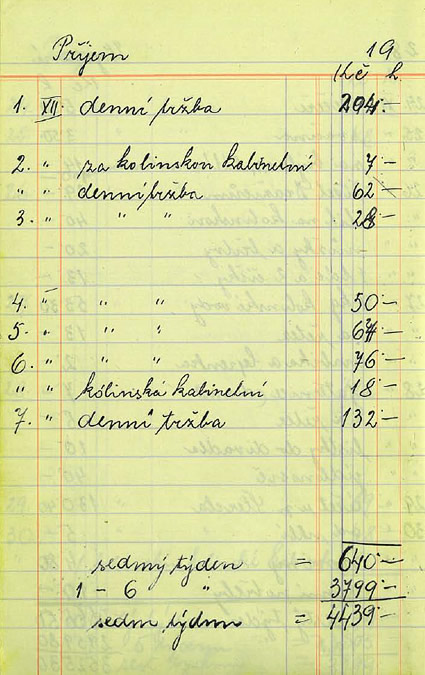 Příjem 19
Kč h.
1. XII. denní tržba 204.—
2. " za kolinskou kabinetní 7.—
" " denní tržba 62.—
3. " " " 28.—
4. " " " 50.—
5. " " "
6. " " " 76.—
" " kolinská kabinetní 18.—
7. " denní tržba 132.—
sedmý týden = 640.—
1 – 6 " 3799.—
sedm týdnů = 4439.—